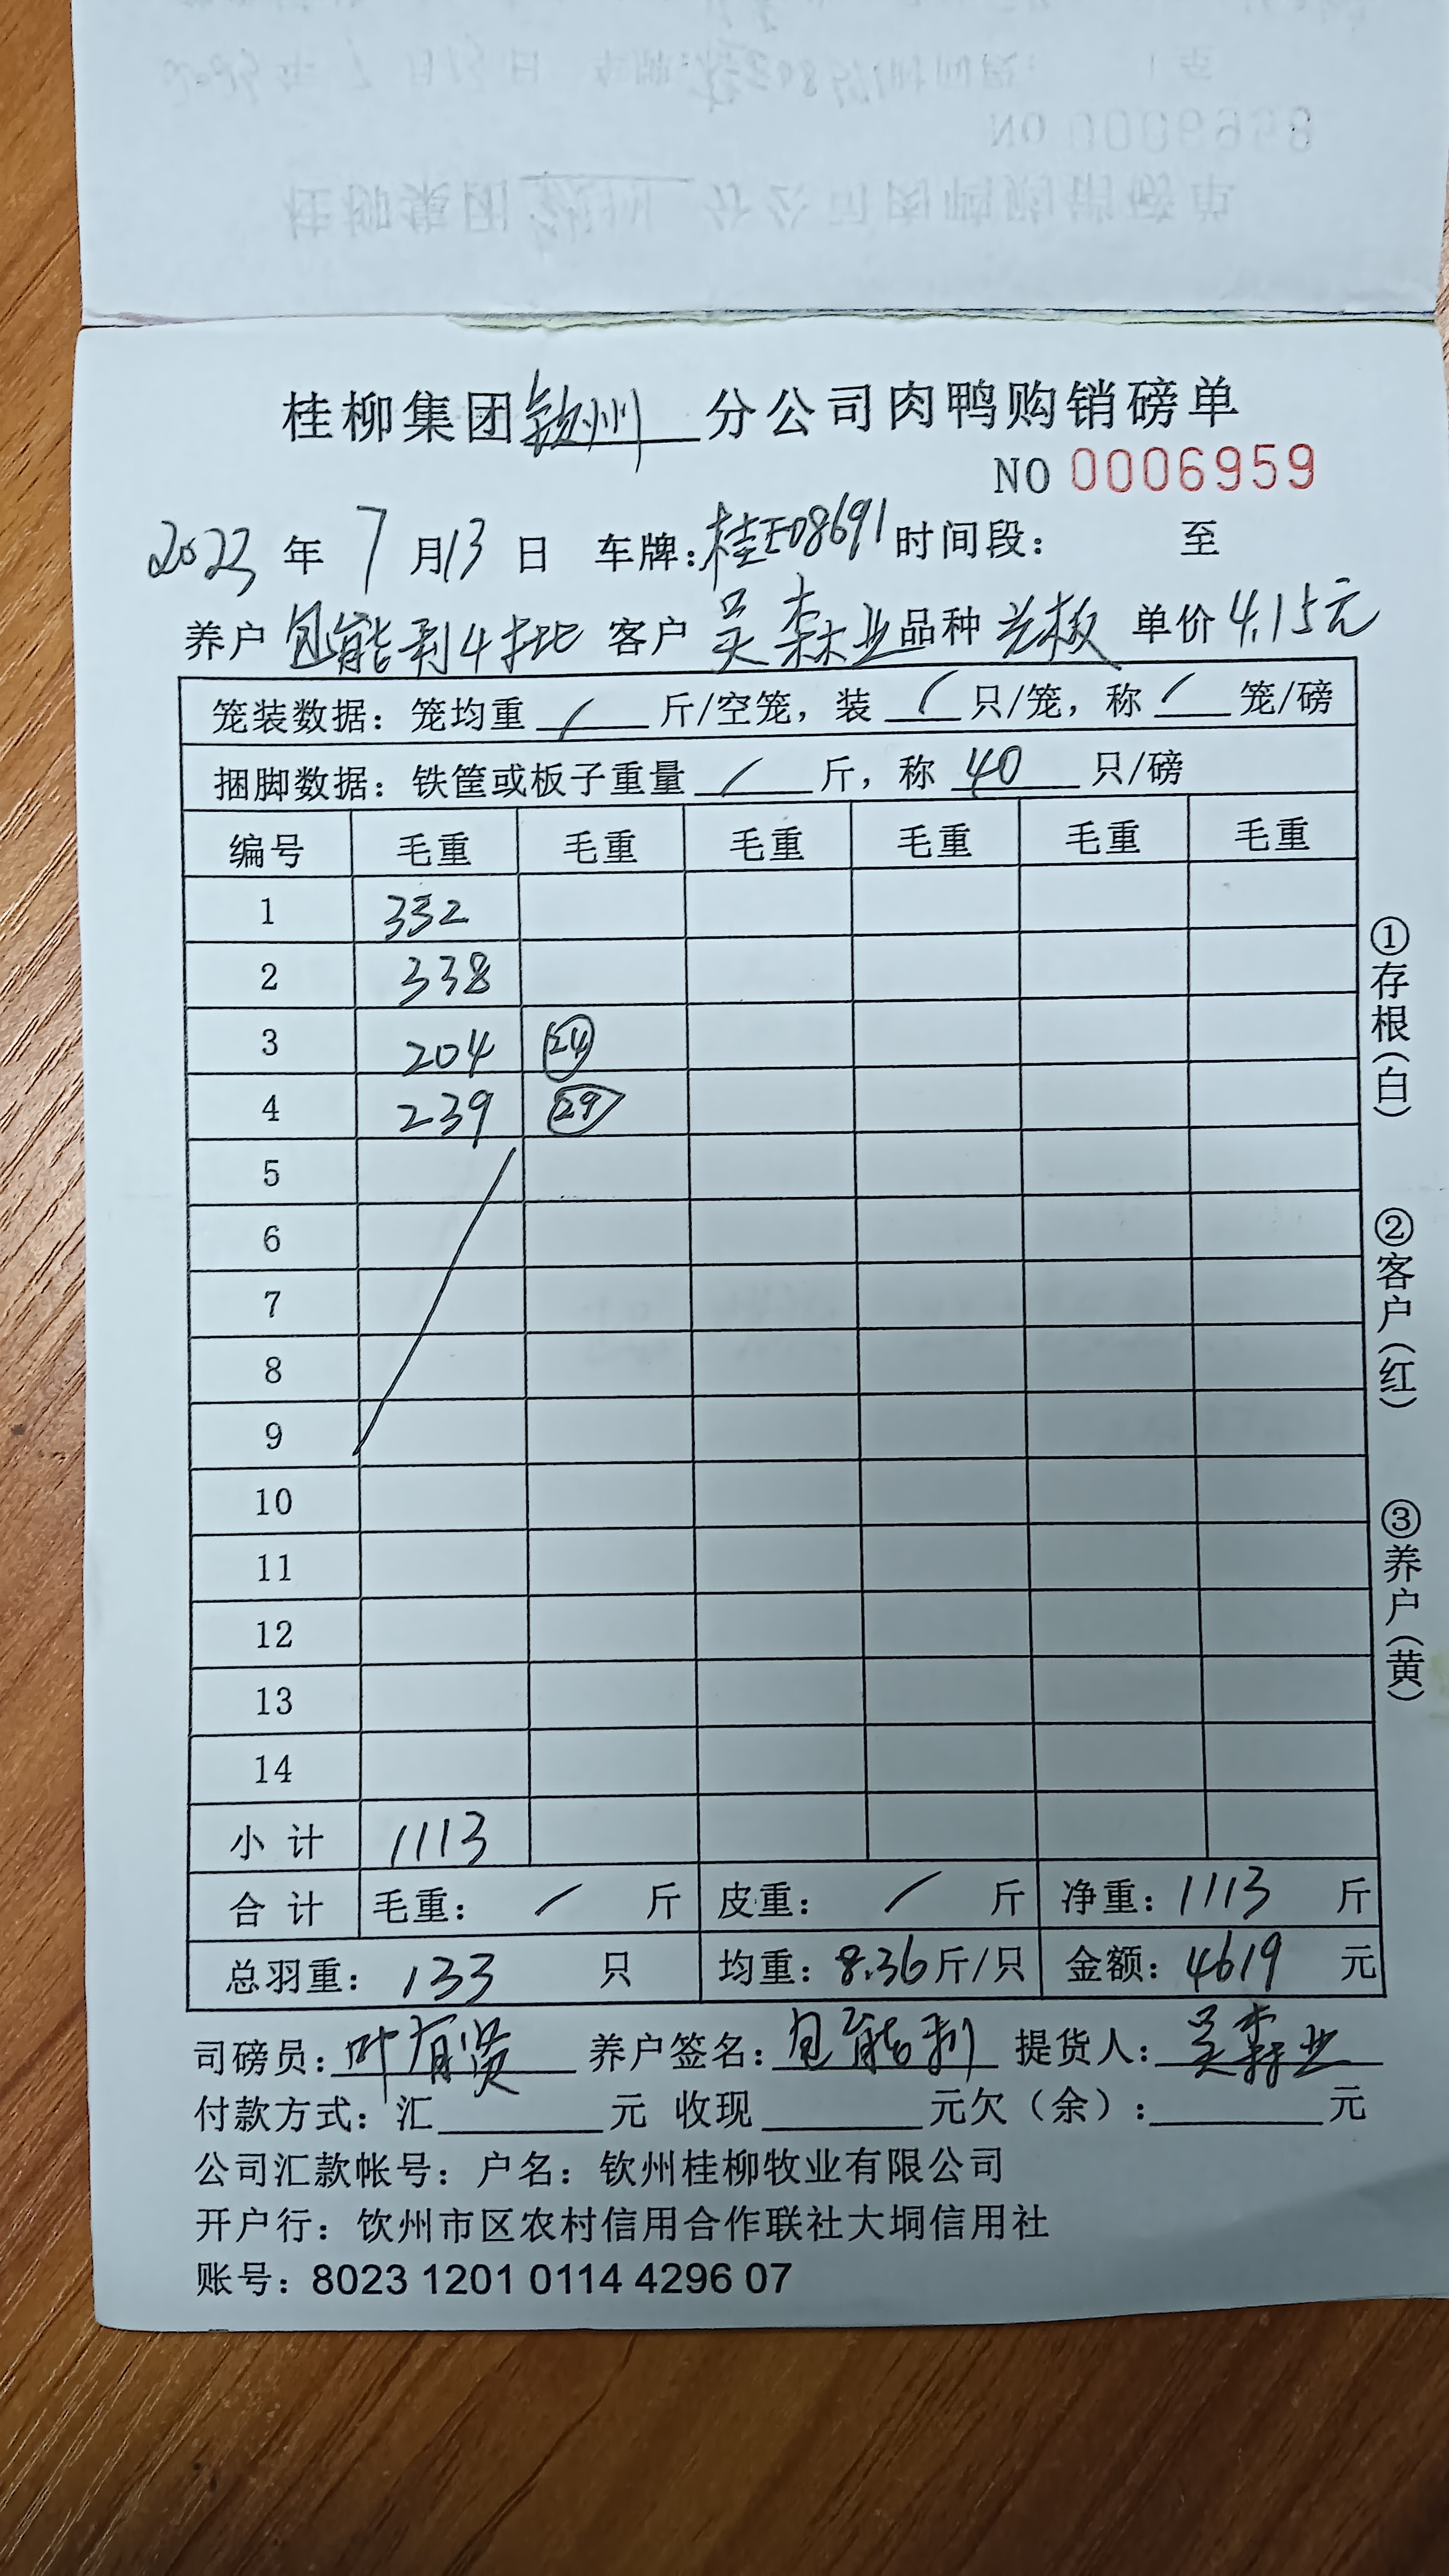 桂柳集团钦州分公司肉鸭购销磅单
NO 0006959
2023 年 7 月 13 日 车牌:桂E08691 时间段: 至
养户 包能利4批 客户 吴森业 品种 单价 4.15元
笼装数据: 笼均重 / 斤/空笼, 装 / 只/笼, 称 / 笼/磅
捆脚数据: 铁筐或板子重量 / 斤, 称 40 只/磅
编号 毛重 毛重 毛重 毛重 毛重 毛重
1 332
2 338
3 204 24
4 239 29
5
6
7
8
9
10
11
12
13
14
小计 1113
合计 毛重: / 斤 皮重: / 斤 净重: 1113 斤
总羽重: 133 只 均重: 8.36 斤/只 金额: 4619 元
司磅员: 叶有贤 养户签名: 包能利 提货人: 吴森业
付款方式: 汇 元 收现 元欠（余）: 元
公司汇款帐号: 户名: 钦州桂柳牧业有限公司
开户行: 饮州市区农村信用合作联社大垌信用社
账号: 8023 1201 0114 4296 07
①存根（白）
②客户（红）
③养户（黄）